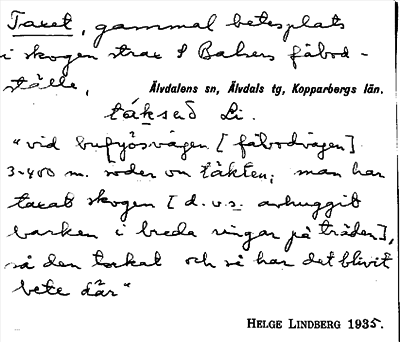 Taxet, gammal betesplats
i skogen strax S Bakers fäbod-
ställe,
Älvdalens sn, Älvdals tg, Kopparbergs län.
táksəð Li.
"vid bufyösvägen [fäbodvägen]
3-400 m. söder on täkten; man har
taxat skogen [d.v.s. avhuggit
barken i breda ringar på träden],
så den torkat och så har det blivit
bete där"
HELGE LINDBERG 1935.